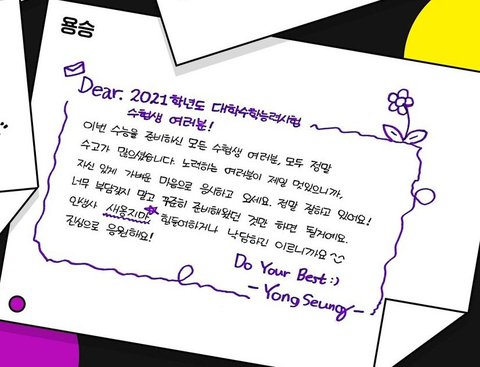 용승
Dear. 2021학년도 대학수학능력시험
수험생 여러분!
이번 수능을 준비하신 모든 수험생 여러분, 모두 정말
수고가 많으셨습니다. 노력하는 여러분이 제일 멋있으니까,
자신 있게 가벼운 마음으로 응시하고 오세요. 정말 잘하고 있어요!
너무 부담갖지 말고 꾸준히 준비해왔던 것만 하면 될거에요.
인생사 새옹지마 힘들어하거나 낙담하긴 이르니까요
진심으로 응원해요!
Do Your Best :)
- YongSeung -